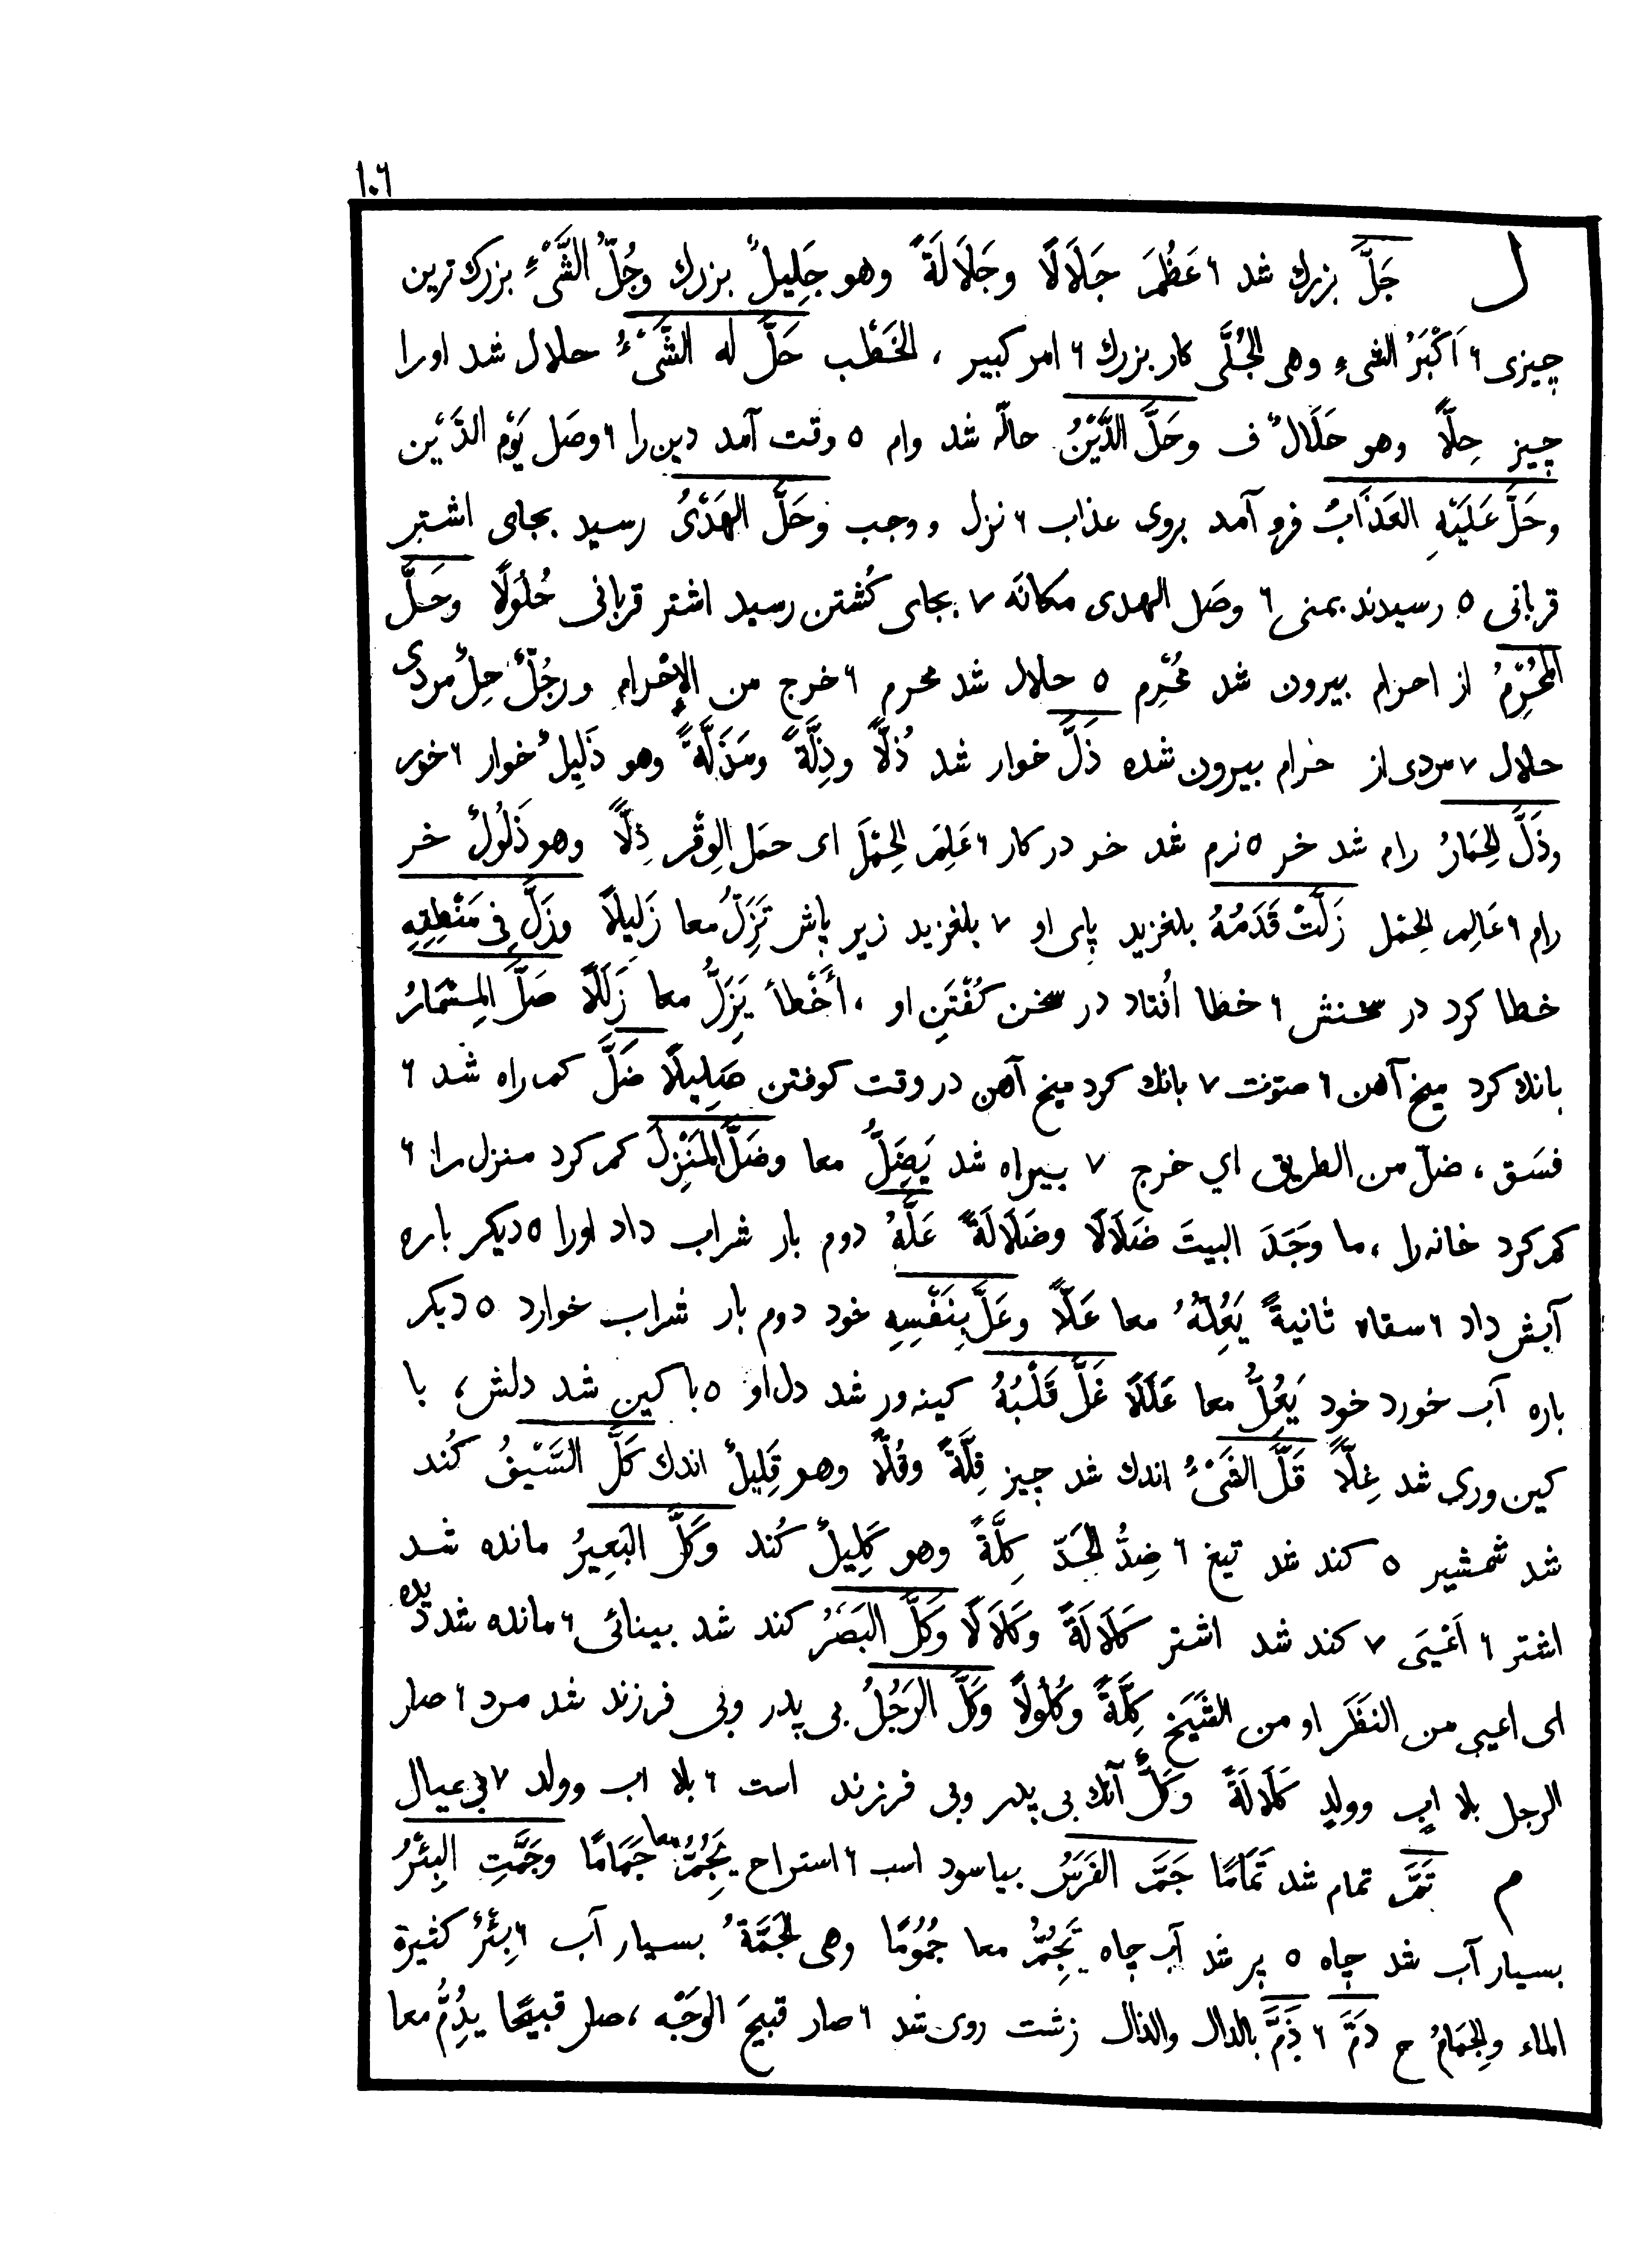 ١٠٦
ل جَلَّ بزرك شد ٦ عَظُمَ جَلَالًا وجَلَالَةً وهو جَلِيلٌ بزرك وجُلُّ الشَّيْءِ بزرك ترين
چيزى ٦ اَكْبَرُ الشىءِ وهى الجُلَّى كار بزرك ٦ امر كبير ، الخَطْب حَلَّ له الشَّيْءُ حلال شد اورا
چيز حِلًّا وهو حَلَالٌ ف وحَلَّ الدَّيْنُ حالّه شد وام ٥ وقت آمد دين را ٦ وصَل يَوْم الدَّيْن
وحَلَّ عَلَيْهِ العَذَابُ فرو آمد بروى عذاب ٦ نزل و وجب وحَلَّ الهَدْىُ رسيد بجاى اشتر
قربانى ٥ رسيدند بمنى ٦ وصَل الهدى مكانَه ٧ بجاى كُشتن رسيد اشتر قربانى حُلُولًا وحَلَّ
المُحْرِمُ از احرام بيرون شد مُحْرِم ٥ حلال شد محرم ٦ خرج من الإحْرام ورجُلٌ حِلٌ مردى
حلال ٧ مردى از حرام بيرون شده ذَلَّ خوار شد ذُلًّا وذِلَّةً ومَذَلَّةً وهو ذَلِيلٌ خوار ٦ خور
وذَلَّ الحِمَارُ رام شد خر ٥ نرم شد خر در كار ٦ عَلِمَ الحَمْلَ اى حمَل الوِقْر ذِلًّا وهو ذَلُولٌ خر
رام ٦ عَالِم الحَمْل زَلَّتْ قَدَمُهُ بلغزيد پاى او ٧ بلغزيد زير پاش تَزِلُّ معا زَلِيلًا وزَلَّ فِى مَنْطِقِهِ
خطا كرد در سخنش ٦ خطا اُفتاد در سخن كُفْتَنِ او ، أَخْطأ يَزِلُّ معا زَلَلًا صَلَّ المِسْمَارُ
بانك كرد ميخ آهن ٦ صوّت ٧ بانك كرد ميخ آهن در وقت كوفتن صَلِيلًا ضَلَّ كم راه شد ٦
فسَق ، ضلّ من الطريق اي خرج ٧ بيراه شد يَضِلُّ معا وضَلَّ المَنْزِلَ كم كرد منزل را ٦
كم كرد خانه را ، ما وَجَدَ البيتَ ضَلَالًا وضَلَالَةً عَلَّهُ دوم بار شراب داد اورا ٥ ديكر باره
آبش داد ٦ سقاه ثانيةً يَعُلّهُ معا عَلًّا وعَلَّ بِنَفْسِهِ خود دوم بار شراب خوارد ٥ ديكر
باره آب خورد خود يَعُلُّ معا عَلَلًا غَلَّ قَلْبُهُ كينه ور شد دل او ٥ با كين شد دلش ، با
كين ورى شد غِلًّا قَلَّ الشَىْءُ اندك شد چيز قِلَّةً وقُلًّا وهو قَلِيلٌ اندك كَلَّ السَّيْفُ كُند
شد شمشير ٥ كند شد تيغ ٦ ضِدُّ الحَدّ كِلَّةً وهو كَلِيلٌ كُند وكَلَّ البَعِيرُ مانده شد
اشتر ٦ اَعْيَى ٧ كند شد اشتر كَلَالَةً وكَلَالًا وكَلَّ البَصَرُ كند شد بينائى ٦ مانده شد ديده
اى اعيى من النظَر او من الشَّيْخ كِلَّةً وكُلُولًا وكَلَّ الرَجُلُ بى پدر وبى فرزند شد مرد ٦ صار
الرجل بلا ابٍ وولدٍ كَلَالَةً وكَلٌّ آنك بى پدر وبى فرزند است ٦ بلا اب وولد ٧ بى عيال
م تَمَّ تمام شد تَمَامًا جَمَّ الفَرَسُ بياسود اسب ٦ استراح يَجُمُّ معا جَمَامًا وجَمَّتِ البِئْرُ
بسيار آب شد چاه ٥ پر شد آب چاه تَجُمُّ معا جُمُومًا وهى الجَمَّةُ بسيار آب ٦ بِئْرٌ كثيرة
الماء والجِمَامُ ج دَمَّ ٦ ذِمَّ بالدال والذال زشت روى شد ٦ صار قبيحَ الوَجْه ، صار قبيحًا يدُِمُّ معا